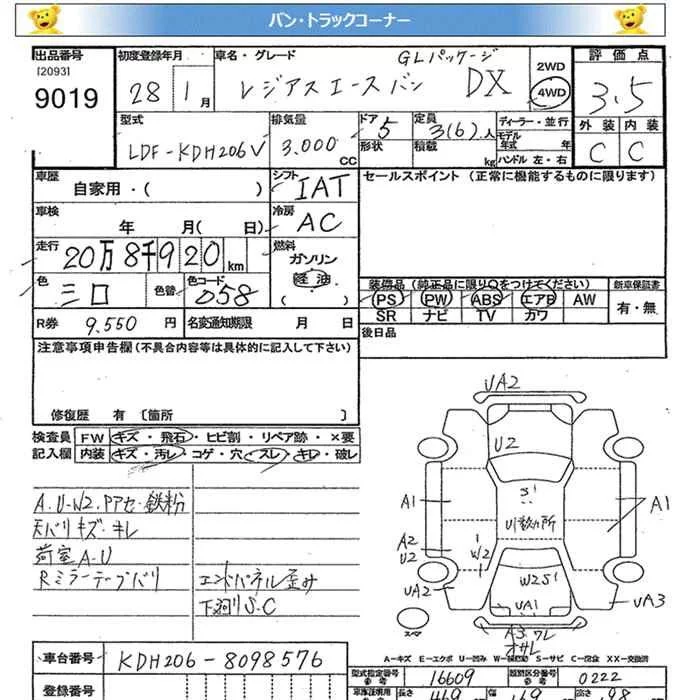 バン・トラックコーナー
出品番号
[2093]
9019
初度登録年月
28 1月
車名・グレード
レジアスエースバン GLパッケージ DX
2WD
4WD
評価点
3.5
外装 内装
C C
型式
LDF-KDH206V
排気量
3.000 CC
ドア 5
形状
定員 3(6)人
積載 kg
ディーラー・並行
モデル年式 年
ハンドル 左・右
車歴
自家用・( )
シフト IAT
セールスポイント (正常に機能するものに限ります)
車検
年 月( 日)
冷房 AC
走行
20万8千920km
燃料
ガソリン
軽油
色
シロ
色替
色コード
058
装備品 (純正品に限り○をつけてください)
PS PW ABS エアB AW
SR ナビ TV カワ
新車保証書
有・無
R券 9.550 円
名変通知期限 月 日
後日品
注意事項申告欄(不具合内容等は具体的に記入して下さい)
修復歴 有 〔箇所 〕
検査員記入欄
FW キズ・飛石・ヒビ割・リペア跡・×要
内装 キズ・汚レ・コゲ・穴・スレ・キレ・破レ
A.U-W2.PPサビ・鉄粉
天バリキズ・キレ
荷室A-U
Rミラーテープバリ
エンドパネル歪み
下廻りS.C
UA2
U2
S1
A1
A1
U1数ヶ所
A2
U2
W2
W2S1
UA2
UA1
UA3
A3ワレ
オサレ
スペア
A―キズ E―エクボ U―凹み W―補修跡 S―サビ C―腐食 XX―交換済
車台番号 KDH206-8098576
型式指定番号 16609
類別区分番号 0222
登録番号
長さ 469
幅 169